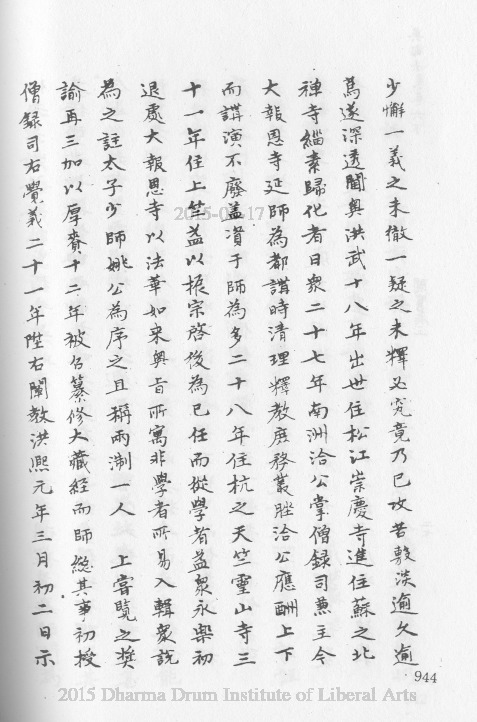 少懈一義之未徹一疑之未釋必究竟乃已攻苦數淡逾久逾
篤遂深透閫奧洪武十八年出世住松江崇慶寺進住蘇之北
禅寺緇素歸化者日衆二十七年南洲洽公掌僧録司兼主今
大報恩寺延師為都講時清理釋教庶務叢脞洽公應酬上下
而講演不廢蓋資于師為多二十八年住杭之天竺靈山寺三
十一年住上竺益以振宗啓後為己任而從學者益衆永樂初
退處大報恩寺以法華如来奥旨所寓非學者所易入輯衆説
為之註太子少師姚公為序之且稱兩淛一人　上嘗覽之奬
諭再三加以厚賚十二年被召纂修大藏經而師總其事初授
僧録司右覺義二十一年陞右闡教洪熙元年三月初二日示
944
2015 Dharma Drum Institute of Liberal Arts